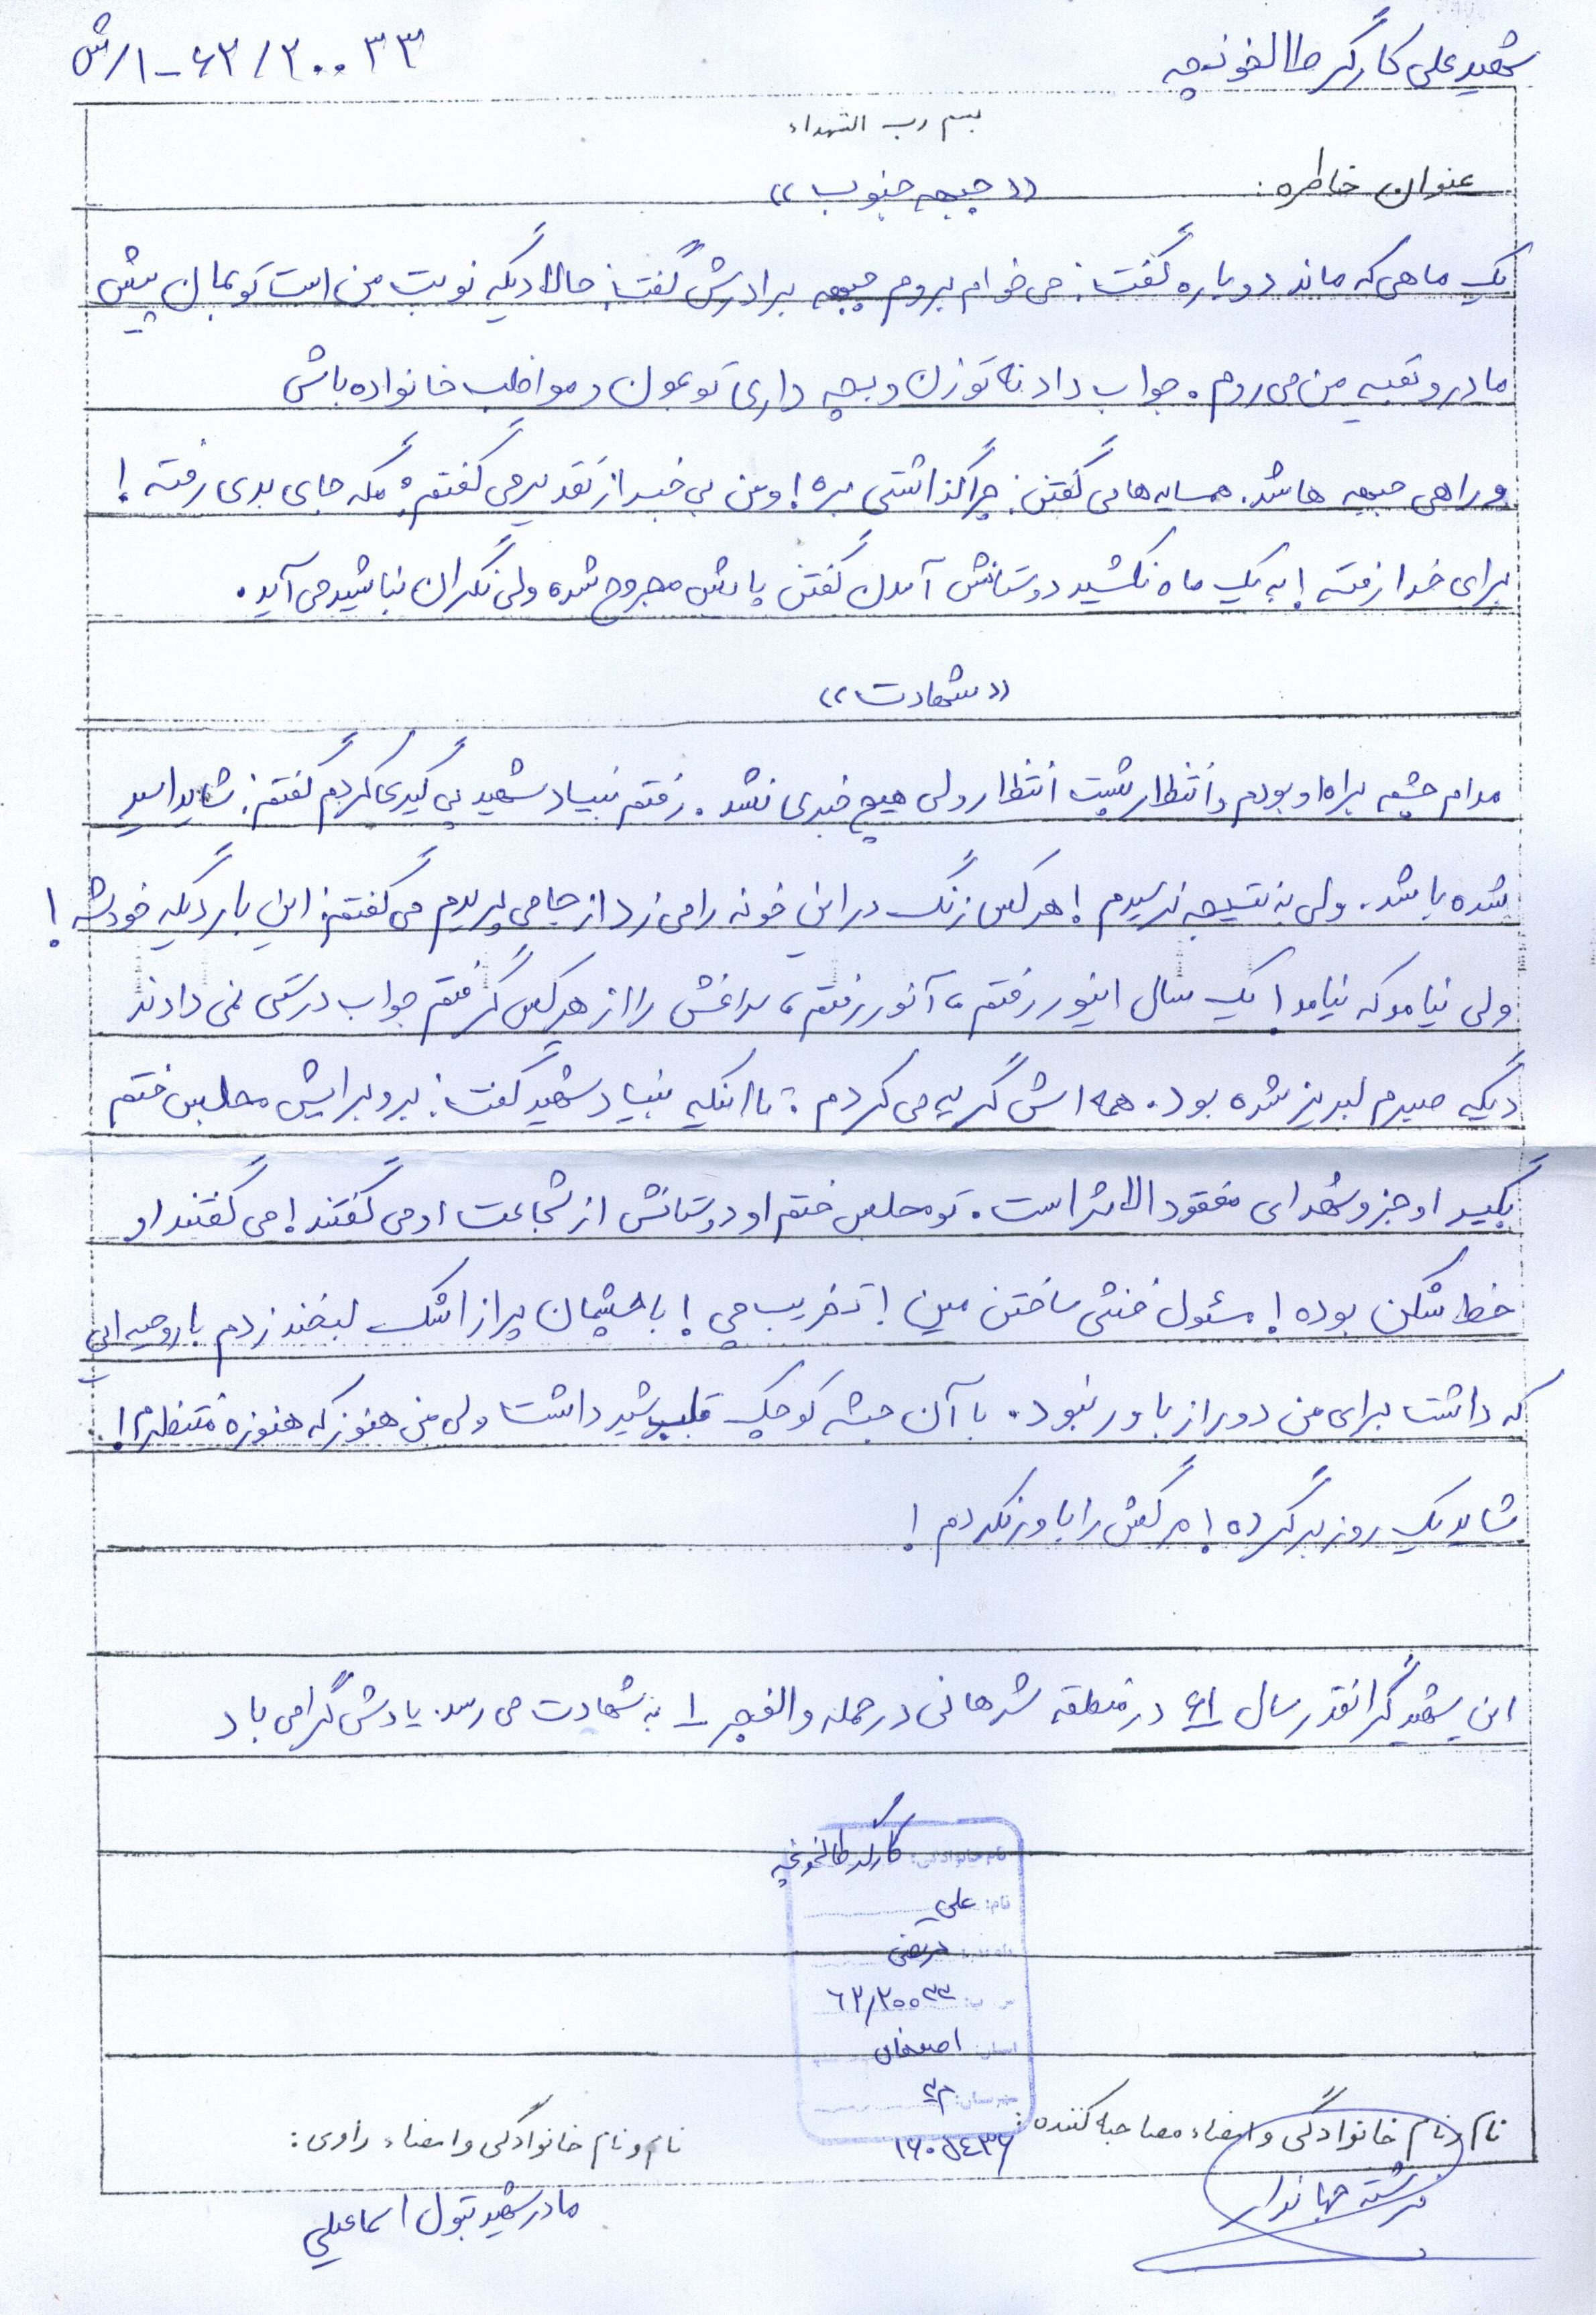 شهید علی کارگر طالخونچه
۱-۶۲/۲۰۰۳۳/ش
بسم رب الشهداء
عنوان خاطره: «جبهه جنوب»
یک ماهی که ماند دوباره گفت: می خوام بروم جبهه برادرش گفت: حالا دیگه نوبت من است تو بمان پیش
مادر و بقیه من می روم. جواب داد نه تو زن و بچه داری تو بمون و مواظب خانواده باش
و راهی جبهه ها شد. همسایه ها می گفتن: چرا گذاشتی بره! و من بی خبر از تقدیر می گفتم: مگه جای بدی رفته!
برای خدا رفته! به یک ماه نکشید دوستانش آمدن گفتن پایش مجروح شده ولی نگران نباشید می آید.
«شهادت»
مدام چشم براه او بودم و انتظار پشت انتظار ولی هیچ خبری نشد. رفتم بنیاد شهید پی گیری کردم گفتم: شاید اسیر
شده باشد. ولی به نتیجه نرسیدم! هر کس زنگ در این خونه را می زد از جا می پریدم می گفتم: این بار دیگه خودشه!
ولی نیامد که نیامد! یک سال اینور رفتم، آنور رفتم، سراغش را از هر کس گرفتم جواب درستی نمی دادند
دیگه صبرم لبریز شده بود. همه اش گریه می کردم: تا اینکه بنیاد شهید گفت: برو برایش مجلس ختم
بگیر او جزو شهدای مفقود الاثر است. تو مجلس ختم او دوستانش از شجاعت او می گفتند! می گفتند او
خط شکن بوده! مسئول خنثی ساختن مین! تخریب چی! با چشمان پر از اشک لبخند زدم با روحیه ای
که داشت برای من دور از باور نبود. با آن جثه کوچک قلب شیر داشت ولی من هنوز که هنوزه منتظرم!
شاید یک روز برگرده! مرگش را باور نکردم!
این شهید گرانقدر سال ۶۱ در منطقه شرهانی در حمله والفجر ۱ به شهادت می رسد. یادش گرامی باد
نام خانوادگی: کارگر طالخونچه
نام: علی
مرتضی
۶۲/۲۰۰۳۳
استان: اصفهان
شهرستان:
۱۶۰۵۴۳۶
نام و نام خانوادگی و امضاء مصاحبه کننده:
فرشته جهاندار
نام و نام خانوادگی و امضاء راوی:
مادر شهید بتول اسماعیلی